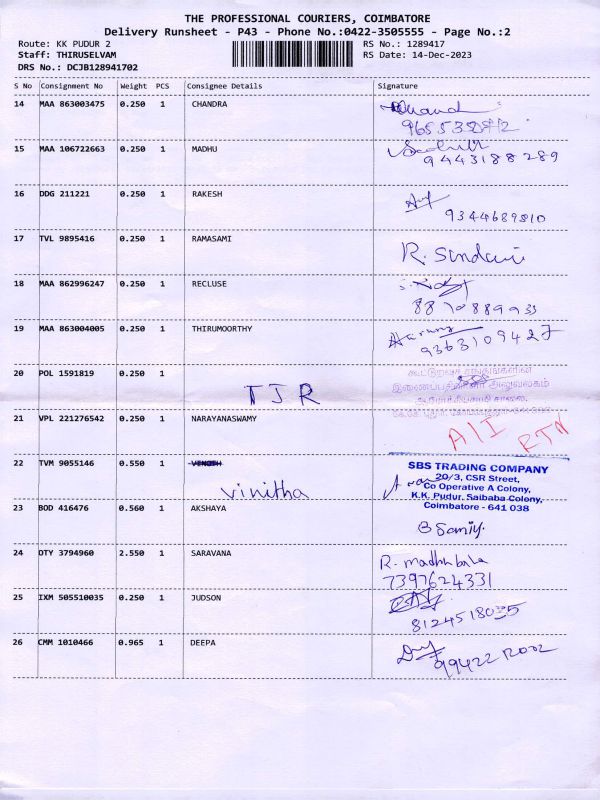 THE PROFESSIONAL COURIERS, COIMBATORE
Delivery Runsheet - P43 - Phone No.:0422-3505555 - Page No.:2
Route: KK PUDUR 2 RS No.: 1289417
Staff: THIRUSELVAM RS Date: 14-Dec-2023
DRS No.: DCJB128941702
S No Consignment No Weight PCS Consignee Details Signature
14 MAA 863003475 0.250 1 CHANDRA
15 MAA 106722663 0.250 1 MADHU
9443188289
16 DDG 211221 0.250 1 RAKESH
9344689810
17 TVL 9895416 0.250 1 RAMASAMI
R.
18 MAA 862996247 0.250 1 RECLUSE
19 MAA 863004005 0.250 1 THIRUMOORTHY
9363109427
20 POL 1591819 0.250 1
TJR
21 VPL 221276542 0.250 1 NARAYANASWAMY
A/I RTN
22 TVM 9055146 0.550 1
Vinitha
SBS TRADING COMPANY
20/3, CSR Street,
Co Operative A Colony,
K.K. Pudur, Saibaba Colony,
Coimbatore - 641 038
23 BOD 416476 0.560 1 AKSHAYA
24 DTY 3794960 2.550 1 SARAVANA
R. madhubala
7397624331
25 IXM 505510035 0.250 1 JUDSON
26 CMM 1010466 0.965 1 DEEPA